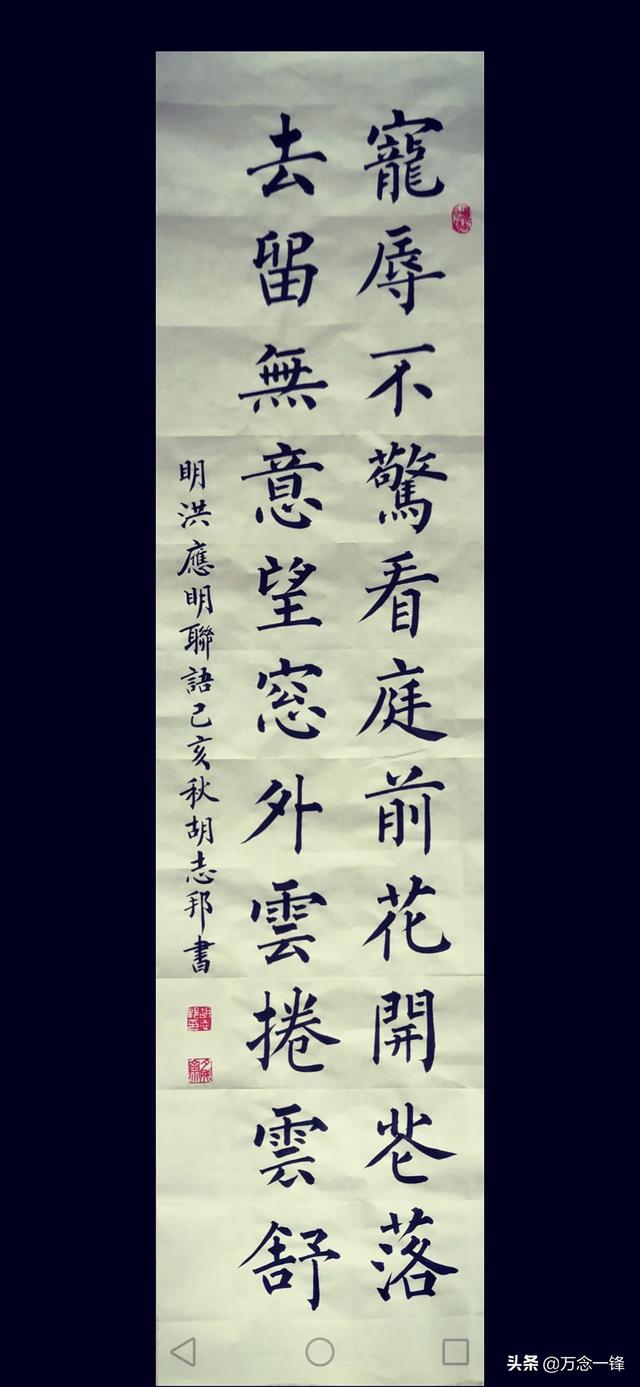 寵辱不驚看庭前花開花落
去留無意望窓外雲捲雲舒
明洪應明聯語己亥秋胡志邦書
头条 @万念一锋